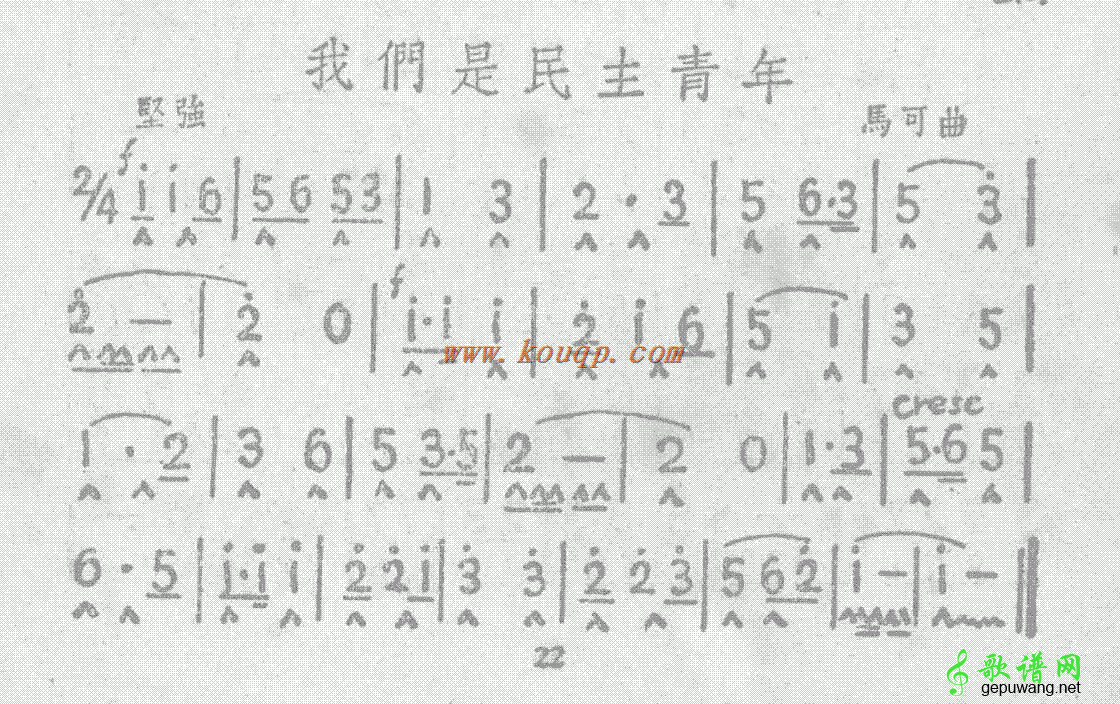 我們是民主青年
堅強
馬可曲
f
2/4 i i 6 | 5 6 5 3 | 1 3 | 2 · 3 | 5 6·3 | 5 3̇ |
f
2̇ — | 2̇ 0 | i·i i | 2̇ i 6 | 5 i | 3 5 |
www.kouqp.com
cresc
1 · 2 | 3 6 | 5 3·5 | 2 — | 2 0 | 1·3 | 5·6 5 |
6 · 5 | i·i i | 2̇ 2̇ i | 3̇ 3̇ | 2̇ 2̇ 3̇ | 5 6 2̇ | i — | i — ‖
22
歌谱网
gepuwang.net